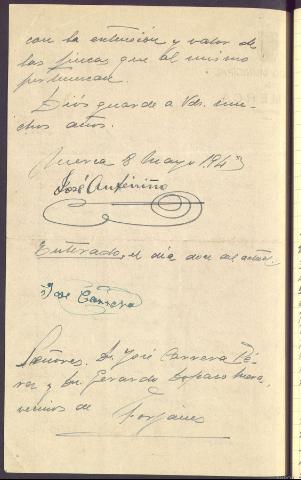 con la extension y valor de
las fincas que al mismo
pertenezcan.
Dios guarde a Vds. mu-
chos años.
8 Mayo 1943
José Antiñirño
Enterado, el día doce del actual.
José Carrera
Señores. D. José Carrera Pé-
rez y D. Gerardo
vecinos de